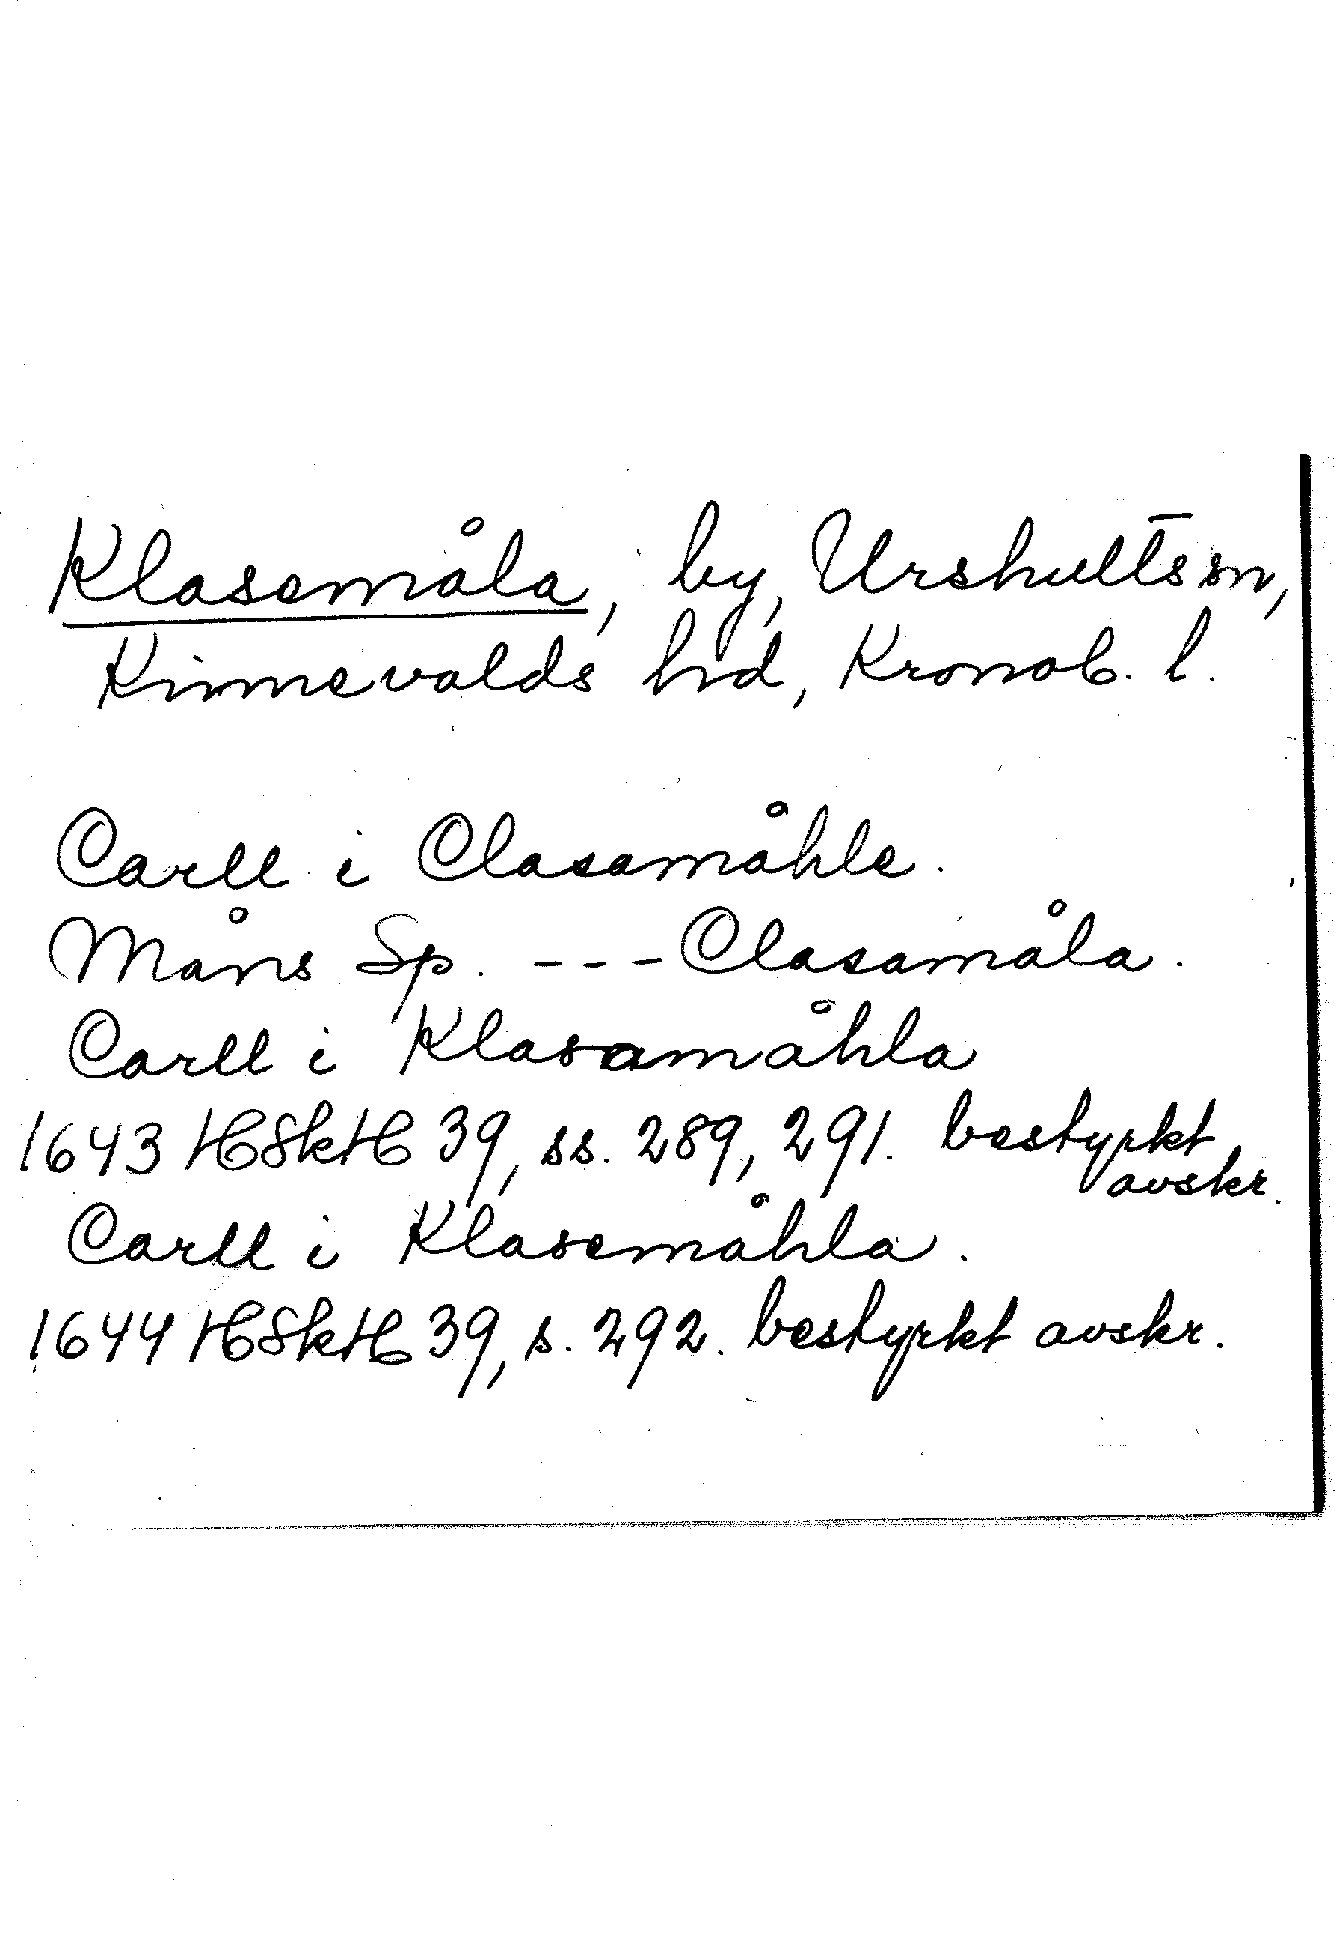 Klasemåla, by, Urshults sn,
Kinnevalds hd, Kronob. l.
Carll i Clasamåhle.
Måns Sp. --- Clasamåla.
Carll i Klasamåhla
1643 HSkH 39, ss. 289, 291. bestyrkt
avskr.
Carll i Klasemåhla.
1644 HSkH 39, s. 292. bestyrkt avskr.